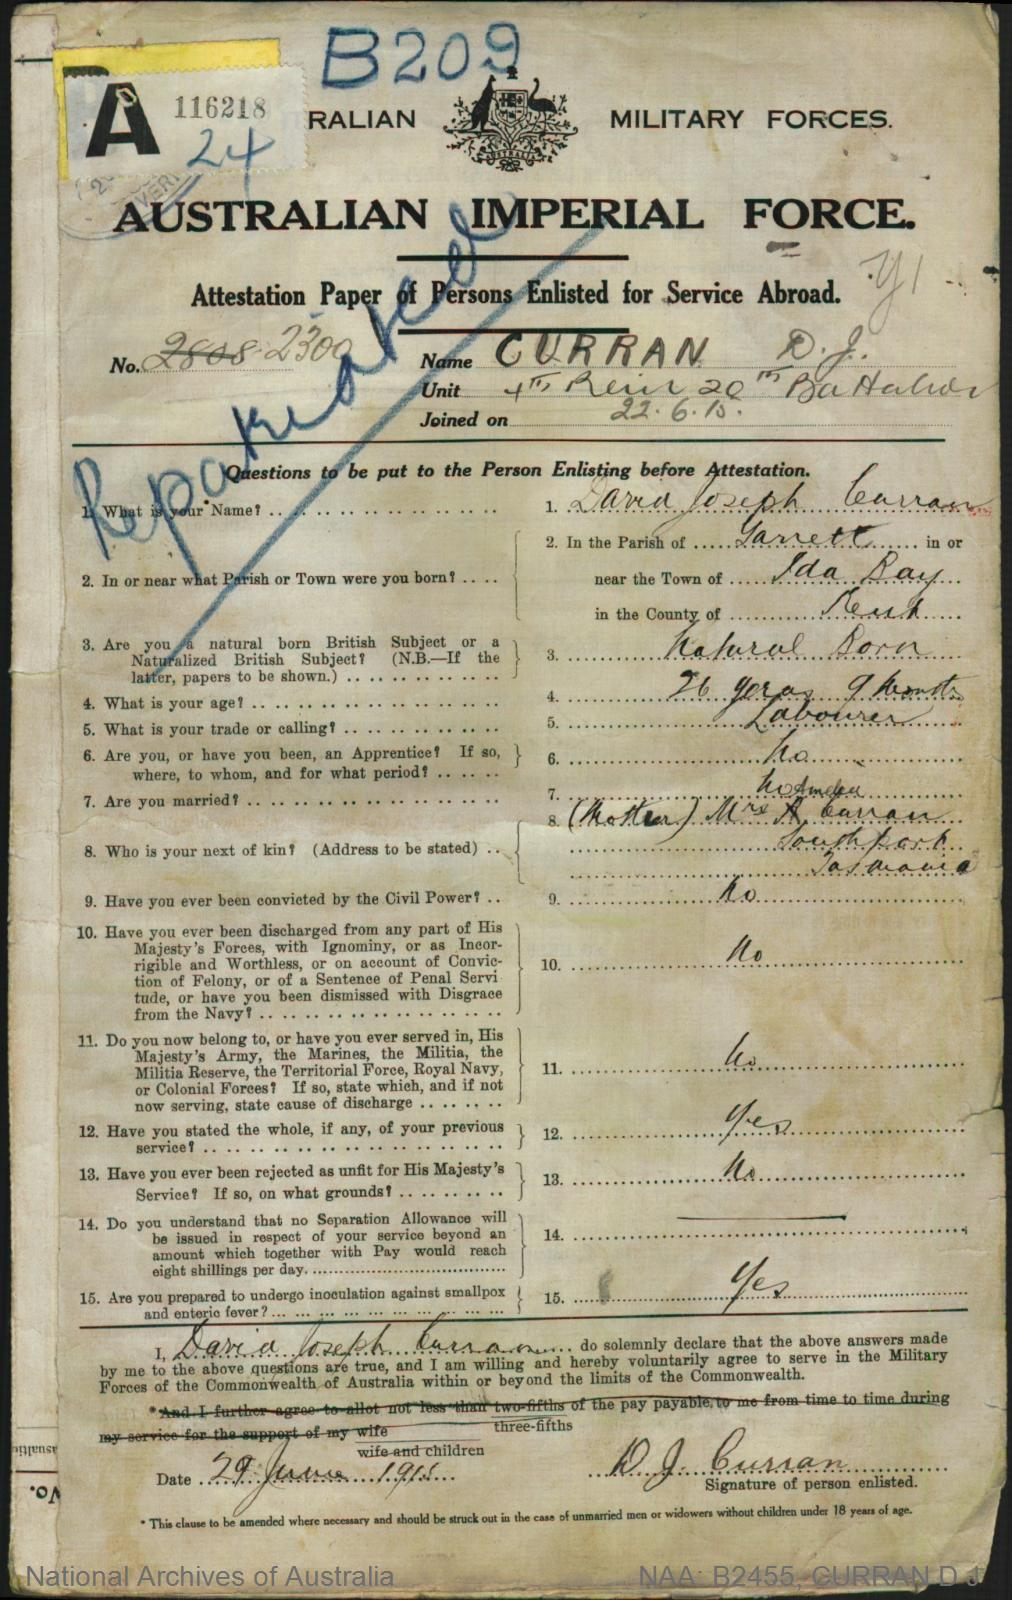 B209
A 116218
24
RALIAN MILITARY FORCES.
AUSTRALIA
AUSTRALIAN IMPERIAL FORCE.
Y1
Attestation Paper of Persons Enlisted for Service Abroad.
Repatriated
No. 2808 2300 Name CURRAN D. J.
Unit 4TH Rein 20TH Battalion
Joined on 22.6.15.
Questions to be put to the Person Enlisting before Attestation.
1. What is your Name? 1. David Joseph Curran
2. In or near what Parish or Town were you born? 2. In the Parish of Garrett in or
near the Town of Ida Bay
in the County of Kent
3. Are you a natural born British Subject or a
Naturalized British Subject? (N.B.—If the
latter, papers to be shown.) 3. Natural Born
4. What is your age? 4. 26 years 9 months
5. What is your trade or calling? 5. Labourer
6. Are you, or have you been, an Apprentice? If so,
where, to whom, and for what period? 6. No
7. Are you married? 7. No
Amelia
8. Who is your next of kin? (Address to be stated) 8. (Mother) Mrs A. Curran
Southport
Tasmania
9. Have you ever been convicted by the Civil Power? 9. No
10. Have you ever been discharged from any part of His
Majesty's Forces, with Ignominy, or as Incor-
rigible and Worthless, or on account of Convic-
tion of Felony, or of a Sentence of Penal Servi
tude, or have you been dismissed with Disgrace
from the Navy? 10. No
11. Do you now belong to, or have you ever served in, His
Majesty's Army, the Marines, the Militia, the
Militia Reserve, the Territorial Force, Royal Navy,
or Colonial Forces? If so, state which, and if not
now serving, state cause of discharge 11. No
12. Have you stated the whole, if any, of your previous
service? 12. Yes
13. Have you ever been rejected as unfit for His Majesty's
Service? If so, on what grounds? 13. No
14. Do you understand that no Separation Allowance will
be issued in respect of your service beyond an
amount which together with Pay would reach
eight shillings per day. 14.
15. Are you prepared to undergo inoculation against smallpox
and enteric fever? 15. Yes
I, David Joseph Curran do solemnly declare that the above answers made
by me to the above questions are true, and I am willing and hereby voluntarily agree to serve in the Military
Forces of the Commonwealth of Australia within or beyond the limits of the Commonwealth.
*And I further agree to allot not less than two-fifths of the pay payable to me from time to time during
three-fifths
my service for the support of my wife
wife and children
Date 29 June 1915 D J Curran
Signature of person enlisted.
* This clause to be amended where necessary and should be struck out in the case of unmarried men or widowers without children under 18 years of age.
National Archives of Australia NAA: B2455, CURRAN D J